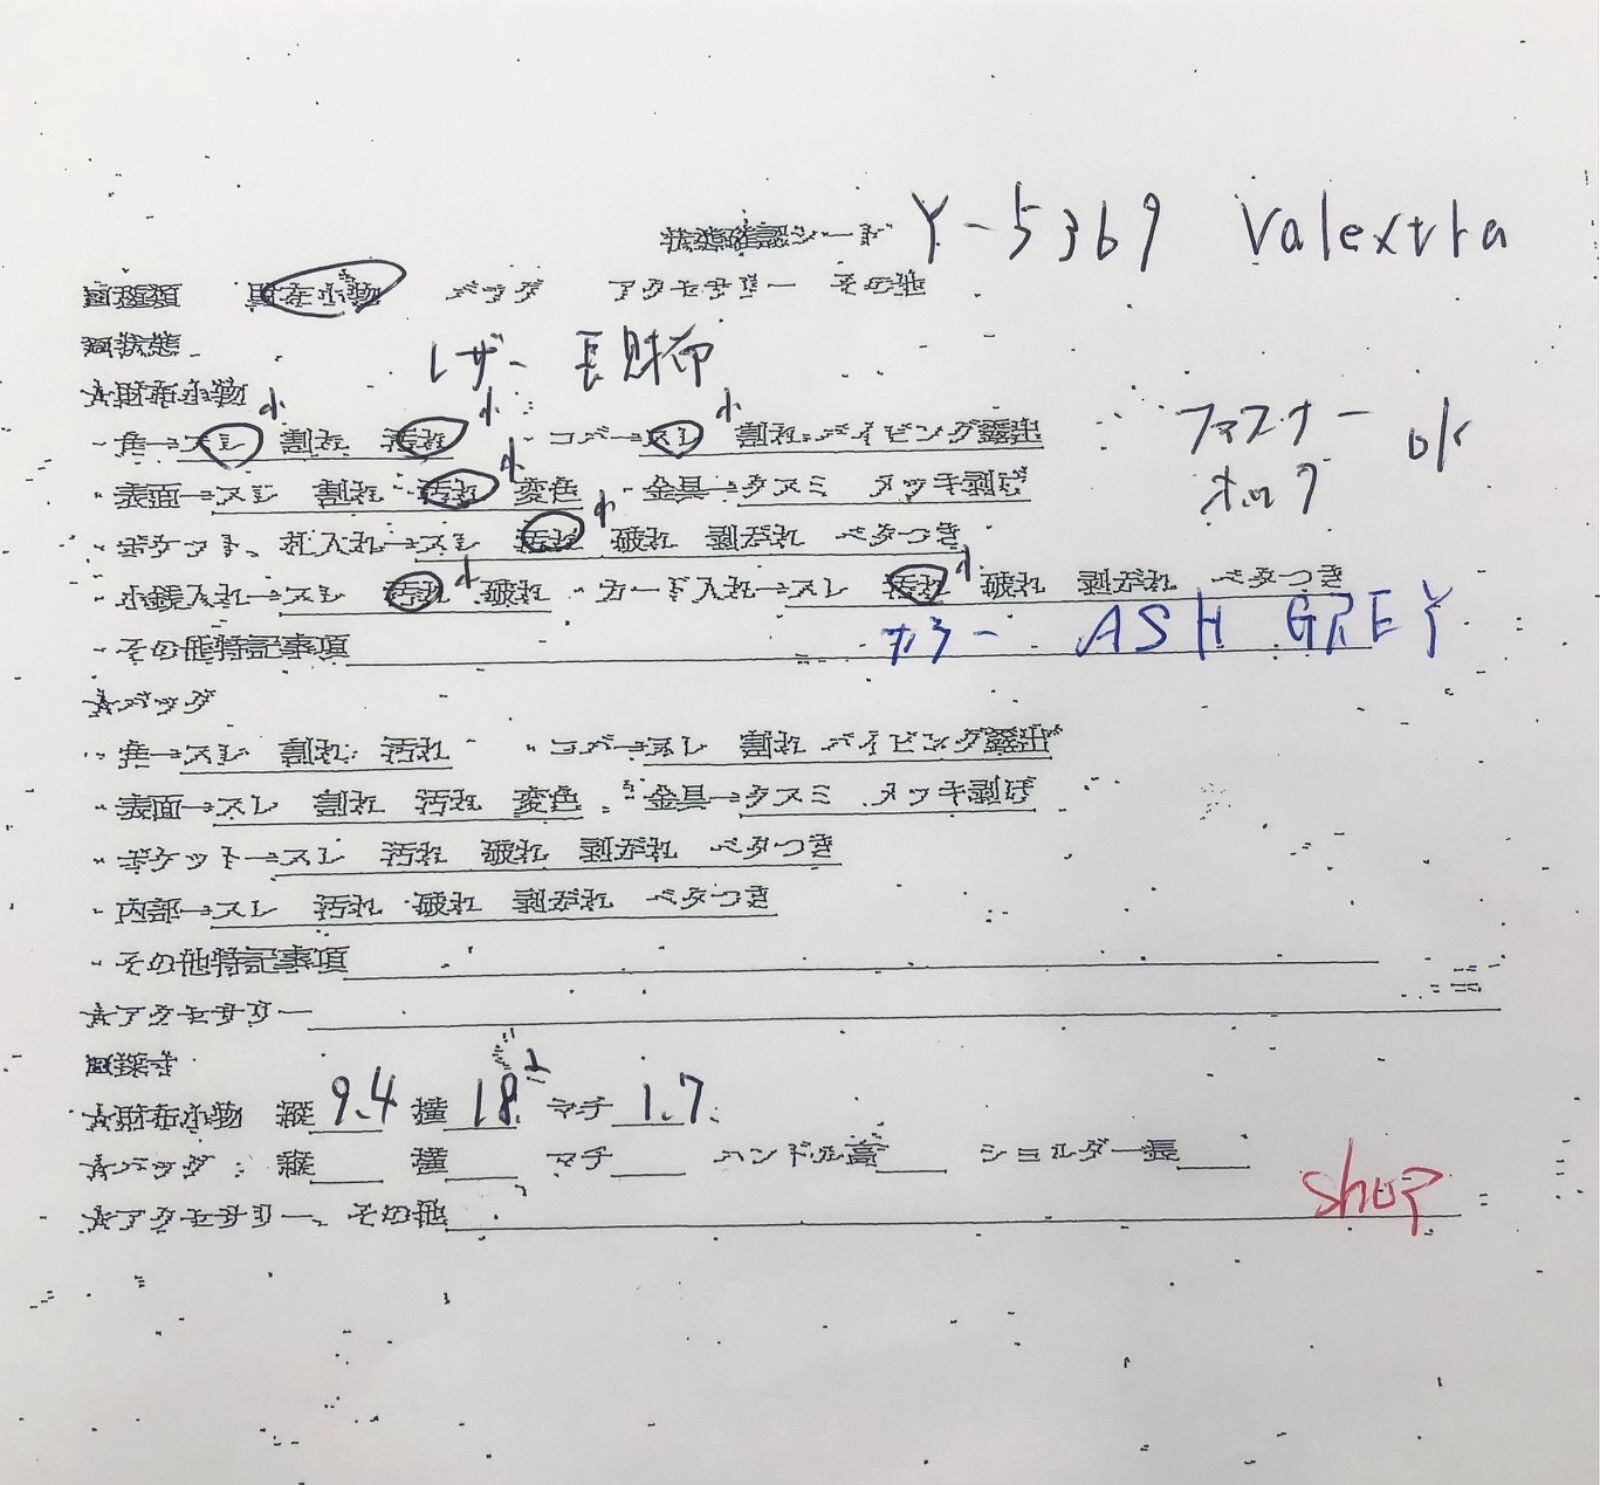 状態確認シート Y-5369 Valextra
■種類 財布小物 バッグ アクセサリー その他
■状態
レザー 長財布
★財布小物
・角→スレ 小 割れ 汚れ 小 ・コバ→スレ 小 割れ パイピング露出 ファスナー ok
・表面→スレ 割れ 汚れ 小 変色 ・金具→クスミ メッキ剥げ ホック
・ポケット、札入れ→スレ 汚れ 小 破れ 剥がれ ベタつき
・小銭入れ→スレ 汚れ 小 破れ ・カード入れ→スレ 汚れ 小 破れ 剥がれ ベタつき
・その他特記事項 カラー ASH GREY
★バッグ
・角→スレ 割れ 汚れ ・コバ→スレ 割れ パイピング露出
・表面→スレ 割れ 汚れ 変色 ・金具→クスミ メッキ剥げ
・ポケット→スレ 汚れ 破れ 剥がれ ベタつき
・内部→スレ 汚れ 破れ 剥がれ ベタつき
・その他特記事項
★アクセサリー
■採寸
★財布小物 縦 9.4 横 18.2 マチ 1.7
★バッグ 縦 横 マチ ハンドル高 ショルダー長
★アクセサリー、その他 shop